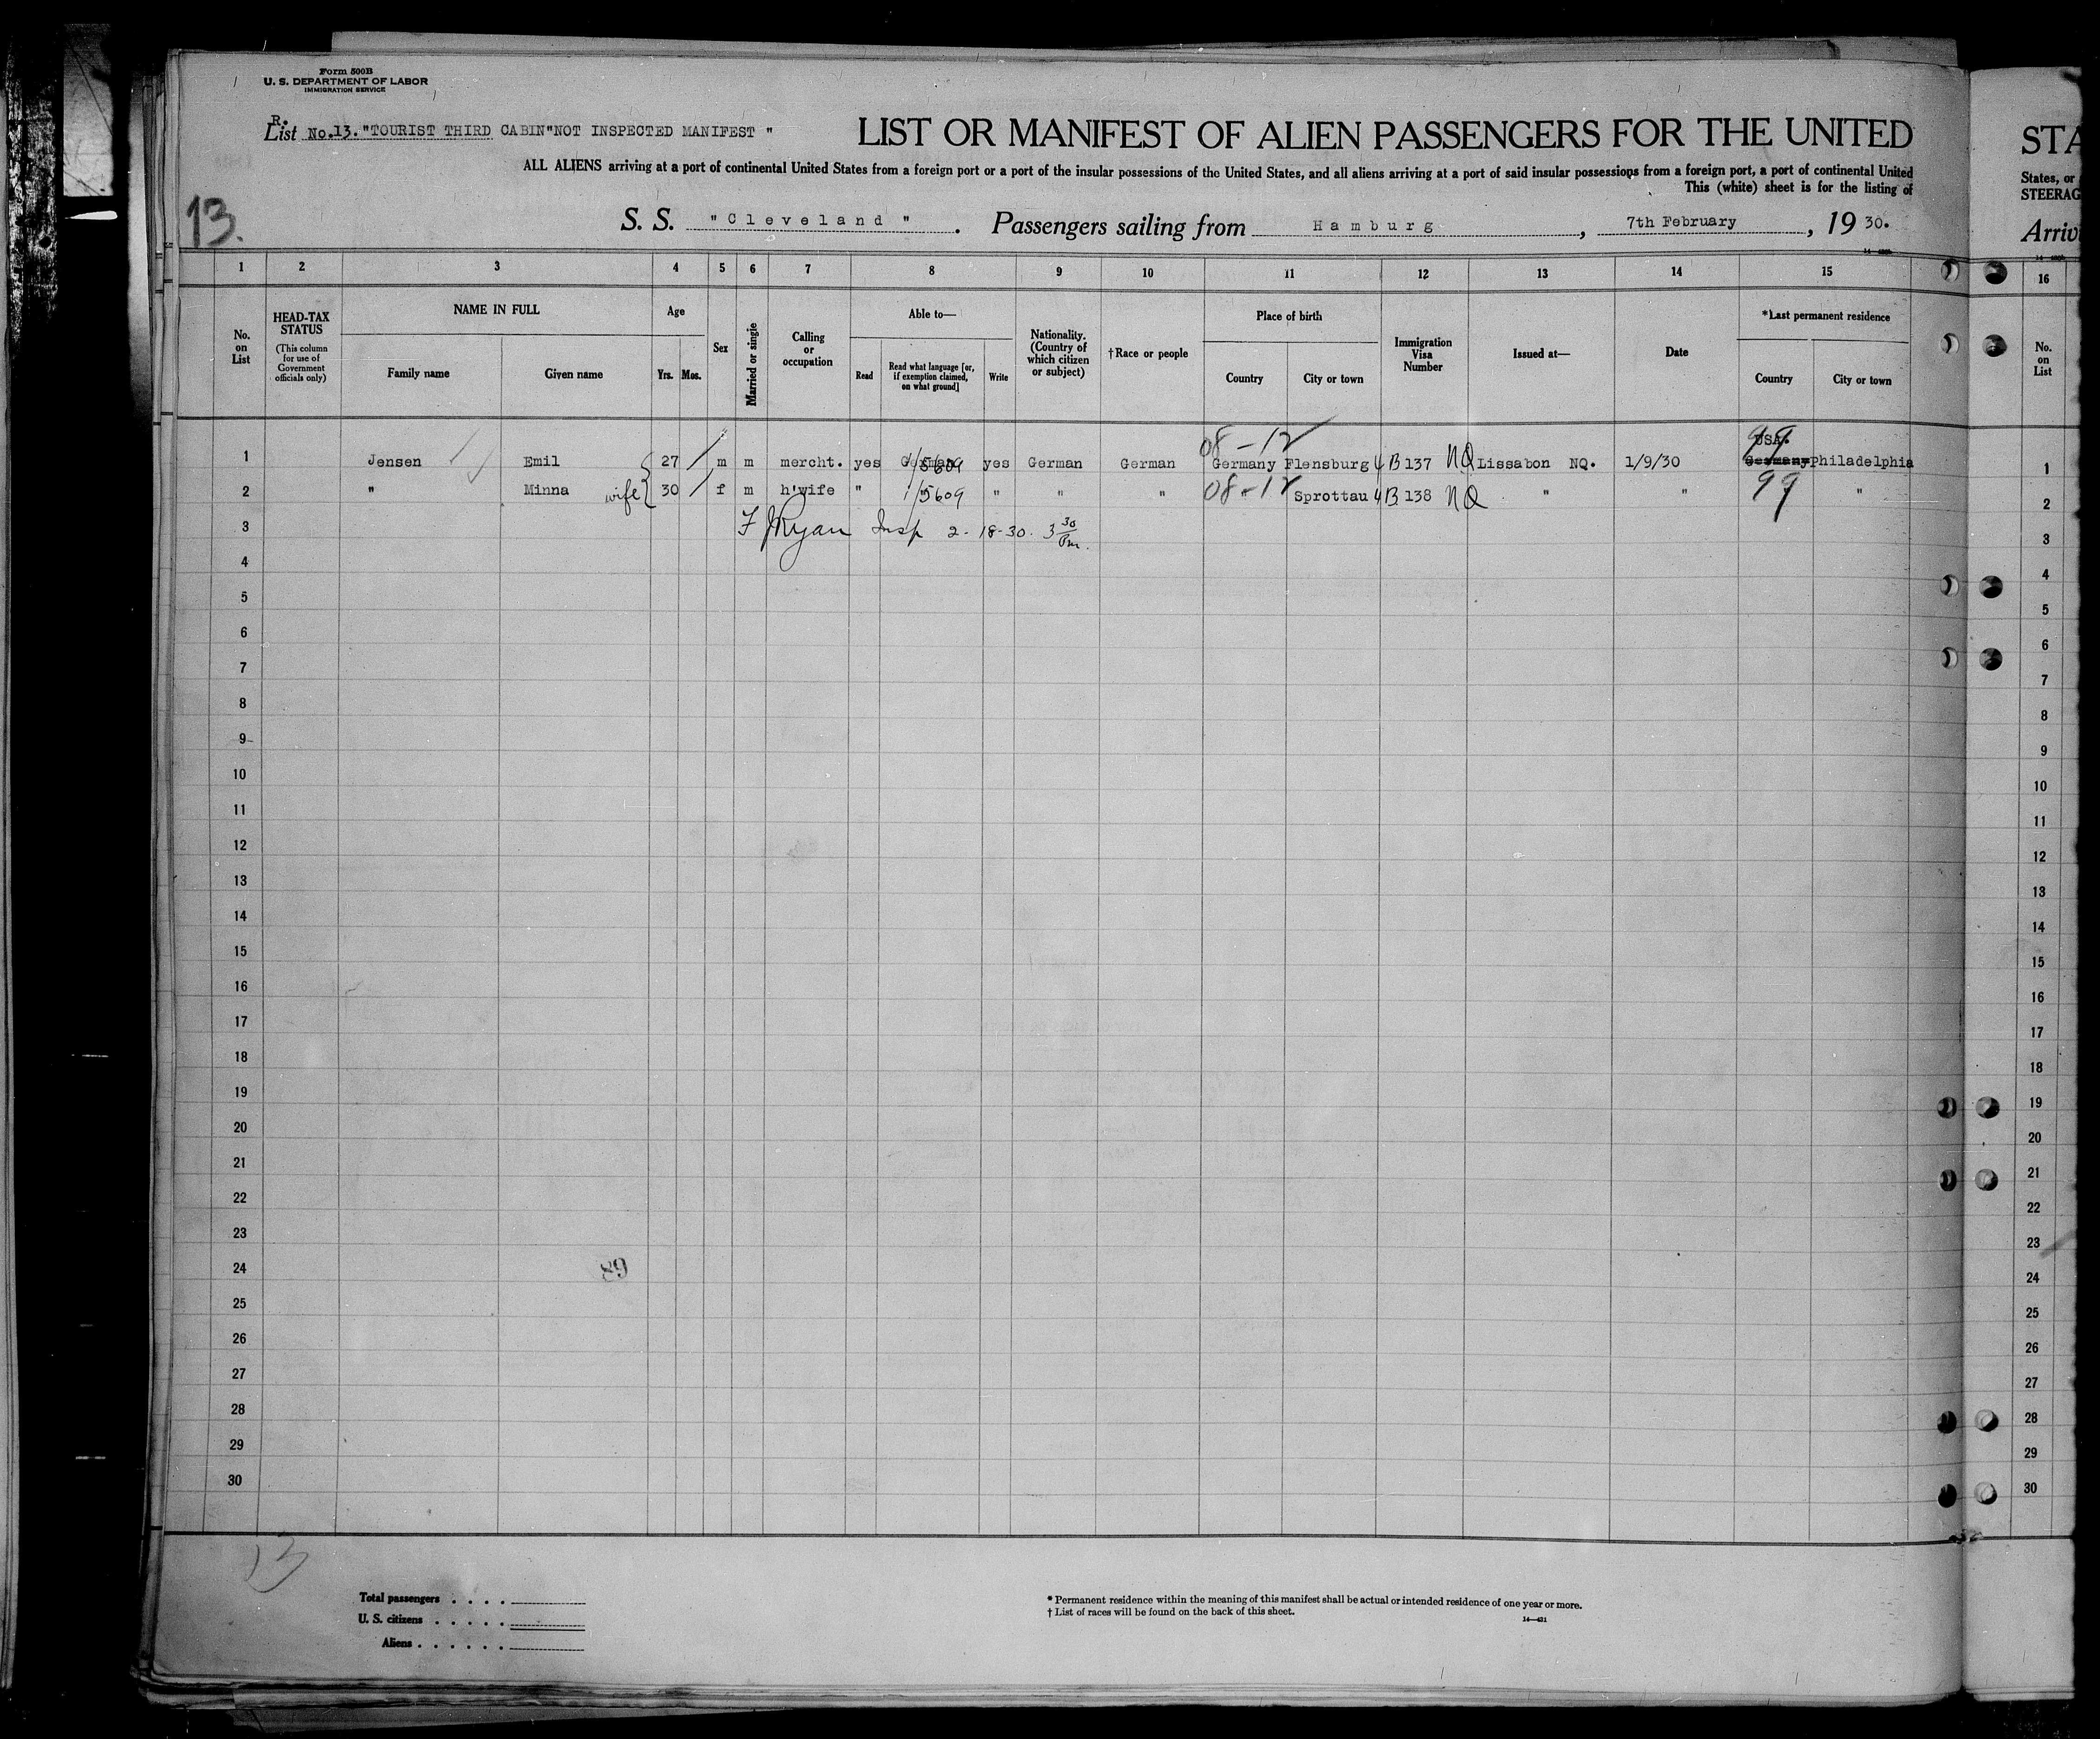 Form 500B
U. S. DEPARTMENT OF LABOR
IMMIGRATION SERVICE
R.
List No.13. "TOURIST THIRD CABIN"NOT INSPECTED MANIFEST "
LIST OR MANIFEST OF ALIEN PASSENGERS FOR THE UNITED
ALL ALIENS arriving at a port of continental United States from a foreign port or a port of the insular possessions of the United States, and all aliens arriving at a port of said insular possessions from a foreign port, a port of continental United
This (white) sheet is for the listing of
13.
S. S. "Cleveland". Passengers sailing from Hamburg, 7th February, 1930.
1 2 3 4 5 6 7 8 9 10 11 12 13 14 15
No. on List
HEAD-TAX STATUS
(This column for use of Government officials only)
NAME IN FULL
Family name Given name
Age
Yrs. Mos.
Sex
Married or single
Calling or occupation
Able to—
Read Read what language [or, if exemption claimed, on what ground] Write
Nationality. (Country of which citizen or subject)
†Race or people
Place of birth
Country City or town
Immigration Visa Number
Issued at—
Date
*Last permanent residence
Country City or town
08-12 99
USA.
1 Jensen Emil 27 m m mercht. yes German 1/5609 yes German German Germany Flensburg 4B 137 NQ Lissabon NQ. 1/9/30 Germany Philadelphia
2 " Minna wife 30 f m h'wife " " 1/5609 " " " 08-12 Sprottau 4B 138 NQ " " 99 "
3 F J Ryan Insp 2-18-30. 3 30 Pm.
4
5
6
7
8
9
10
11
12
13
14
15
16
17
18
19
20
21
22
23
24
89
25
26
27
28
29
30
13
Total passengers . . . .
U. S. citizens . . . . .
Aliens . . . . . .
* Permanent residence within the meaning of this manifest shall be actual or intended residence of one year or more.
† List of races will be found on the back of this sheet.
14—421
STA
States, or
STEERAG
Arriv
16
No. on List
1
2
3
4
5
6
7
8
9
10
11
12
13
14
15
16
17
18
19
20
21
22
23
24
25
26
27
28
29
30